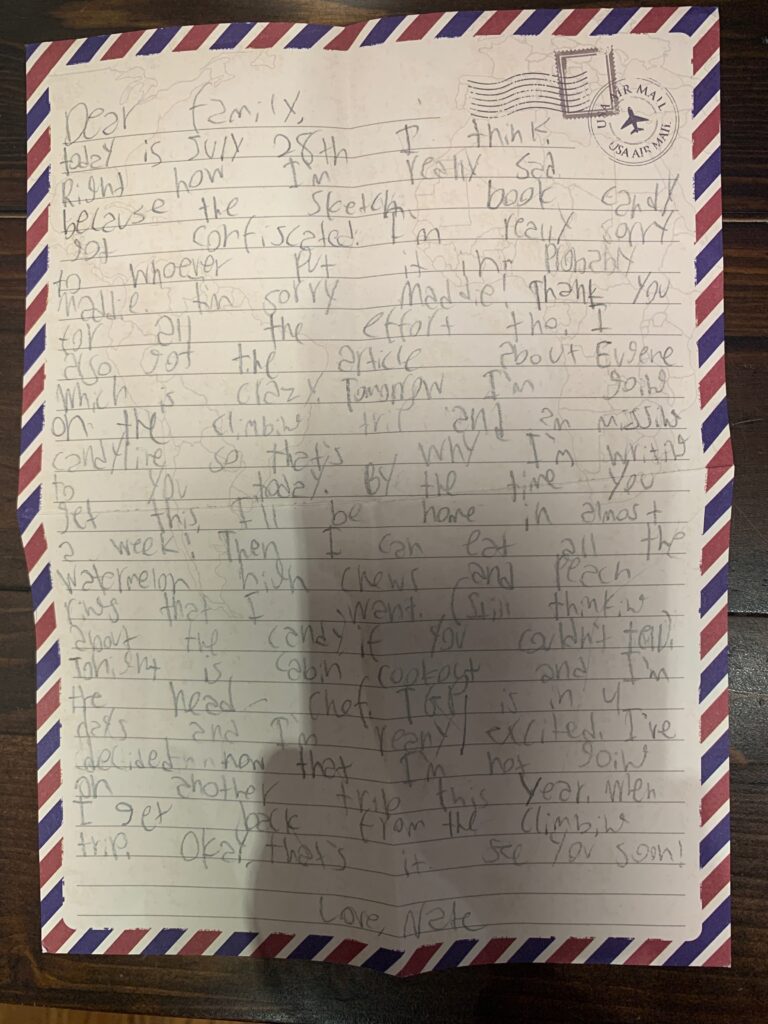 USA AIR MAIL
USA AIR MAIL
Dear family,
today is JULY 28th I think.
Right now I'm really sad
because the sketch book candy
got confiscated. I'm really sorry
to whoever put it in. Probably
Maddie. I'm sorry Maddie! Thank you
for all the effort tho. I
also got the article about Eugene
which is crazy. Tomorrow I'm goiw
on the climbiw trip and am missiw
candyfire so that's why I'm writiw
to you today. By the time you
get this, I'll be home in almost
a week! Then I can eat all the
watermelon high chews and peach
riws that I want. (Still thinkiw
about the candy if you couldn't tell).
Tonight is cabin cookout and I'm
the head chef. is in 4
days and I'm really excited. I've
decided now that I'm not goiw
on another trip this year, when
I get back from the climbiw
trip. Okay, that's it. See you soon!
Love, Nate